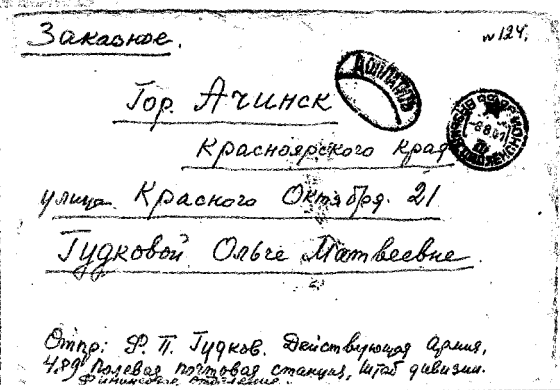 Заказное.
№ 124.
ДОПЛАТИТЬ
Гор. Ачинск
Красноярского Края
улица Красного Октября. 21
Гудковой Ольге Матвеевне.
Отпр: Ф. П. Гудков. Действующая Армия,
489 полевая почтовая станция, штаб дивизии.
Финансовое отделение.